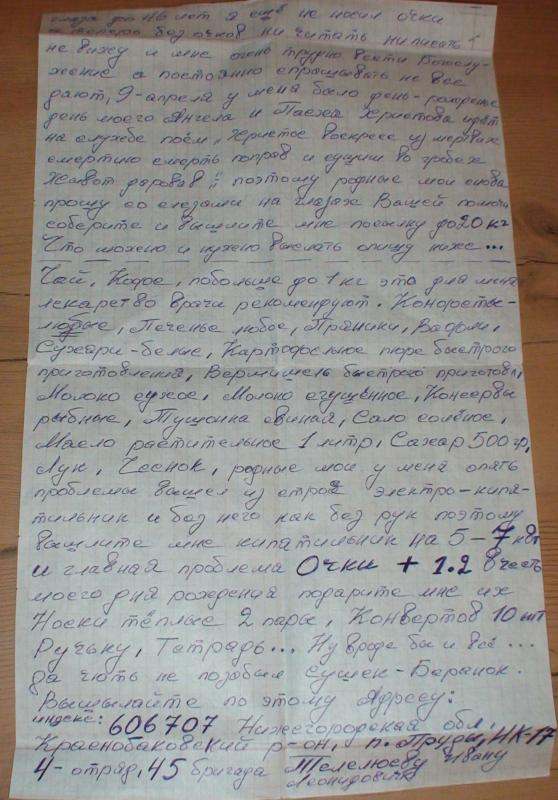 глаза до 46 лет я ещё не носил очки
а теперь без очков ни читать ни писать
не вижу и мне очень трудно вести Богослу-
жение а постоянно спрашивать не все
дают, 9-апреля у меня было день-рождение
день моего Ангела и Пасха Христова идёт
на службе поём „Христос воскресе из мертвых
смертию смерть поправ и сущим во гробех
Живот даровав" поэтому родные мои снова
прошу со слезами на глазах Вашей помощи
соберите и вышлите мне посылку до 20 кг
Что можно и нужно выслать опишу ниже...
Чай, Кофе, побольше до 1 кг это для меня
лекарство врачи рекомендуют. Конфеты-
любые, Печенье любое, Пряники, Вафли,
Сухари-белые, Картофельное пюре быстрого
приготовления, Вермишель быстрого приготовл,
Молоко сухое, Молоко сгущённое, Консервы
рыбные, Тушонка свиная, Сало солёное,
Масло растительное 1 литр, Сахар 500 гр,
Лук, Чеснок, родные мои у меня опять
проблемы вышел из строя электро-кипя-
тильник и без него как без рук поэтому
вышлите мне кипятильник на 5-7 квт
и главная проблема Очки + 1.2 в честь
моего дня рождения подарите мне их
Носки тёплые 2 пары, Конвертов 10 шт
Ручьку, Тетрадь... Ну вроде бы и всё...
да чють не позабыл Сушек-Баранок.
Вышылайте по этому Адресу:
индекс: 606707 Нижегородская обл,
Краснобаковский р-он, п. Пруды, ИК-17
4-отряд, 45 бригада Телелюеву Ивану
Леонидовичу